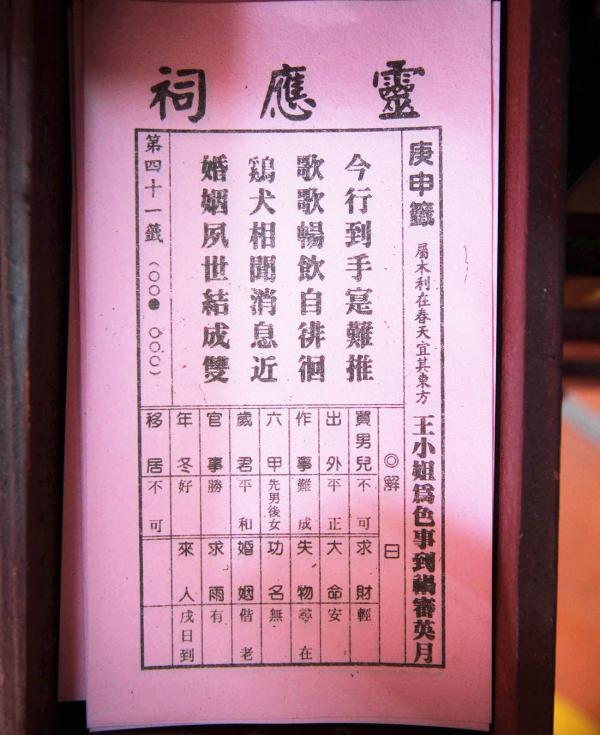 靈應祠
庚申籤 屬木利在春天宜其東方 王小姐爲色事到禍審英月
今行到手寔難推
歌歌暢飲自徘徊
鶏犬相聞消息近
婚姻夙世結成雙
第四十一籤 (○○● ○○○)
◎解曰
買男兒 不可 求財 輕
出外 平正 大命 安
作事 難成 失物 尋在
六甲 先男後女 功名 無
歲君 平和 婚姻 偕老
官事 勝 求雨 有
年冬 好 來人 戌日到
移居 不可